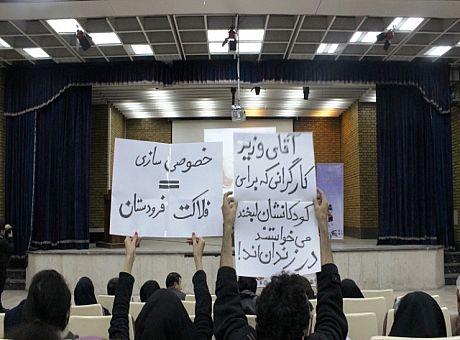 خصوصی سازی
=
فلاکت فرودستان
آقای وزیر
کارگرانی که برای
کودکانشان لبخند
می‌خواستند
در زندان‌اند!